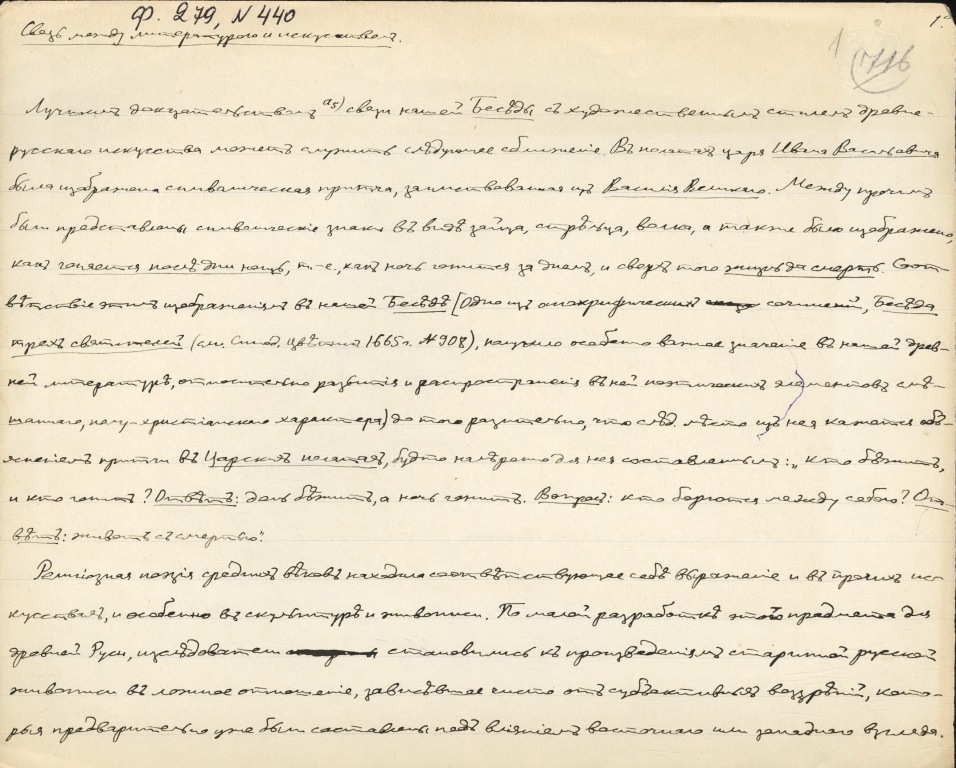 Ф. 279, N 440
1.
Связь между литературою и искусствомъ.
1
1716
Лучшимъ доказательствомъ связи нашей Бесѣды съ художественнымъ стилемъ древне-
русскаго искусства можетъ служить слѣдующее сближеніе. Въ полатахъ царя Ивана Васильевича
была изображена символическая притча, заимствованная изъ Василія Великаго. Между прочимъ
были представлены символическіе знаки въ видѣ зайца, стрѣльца, волка, а также было изображено,
какъ гоняется послѣ дни нощь, т. е. какъ ночь гонится за днемъ, и сверхъ того жизнь да смерть. Соот-
вѣтствіе этимъ изображеніямъ въ нашей Бесѣдѣ [Одно изъ апокрифическихъ сочиненій, Бесѣда
трехъ святителей (см. Синод. Цвѣтникъ 1665 г. № 908), получило особенно важное значеніе въ нашей древ-
ней литературѣ, относительно развитія и распространенія въ ней поэтическихъ элементовъ смѣ-
шаннаго, полу-христіанскаго характера) до того разительно, что слѣд. мѣсто изъ нея кажется объ-
ясненіемъ притчи въ Царскихъ полатахъ, будто намѣренно для нея составленнымъ: „кто бѣжитъ,
и кто гонитъ? Отвѣтъ: день бѣжитъ, а ночь гонитъ. Вопросъ: кто борются между собою? От-
вѣтъ: животъ съ смертью".
Религіозная поэзія среднихъ вѣковъ находила соотвѣтствующее себѣ выраженіе и въ прочихъ ис-
кусствахъ, и особенно въ скульптурѣ и живописи. По малой разработкѣ этого предмета для
древней Руси, изслѣдователи становились къ произведеніямъ старинной русской
живописи въ ложное отношеніе, зависѣвшее чисто отъ субъективныхъ воззрѣній, кото-
рыя предварительно уже были составлены подъ вліяніемъ восточнаго или западнаго взгляда.